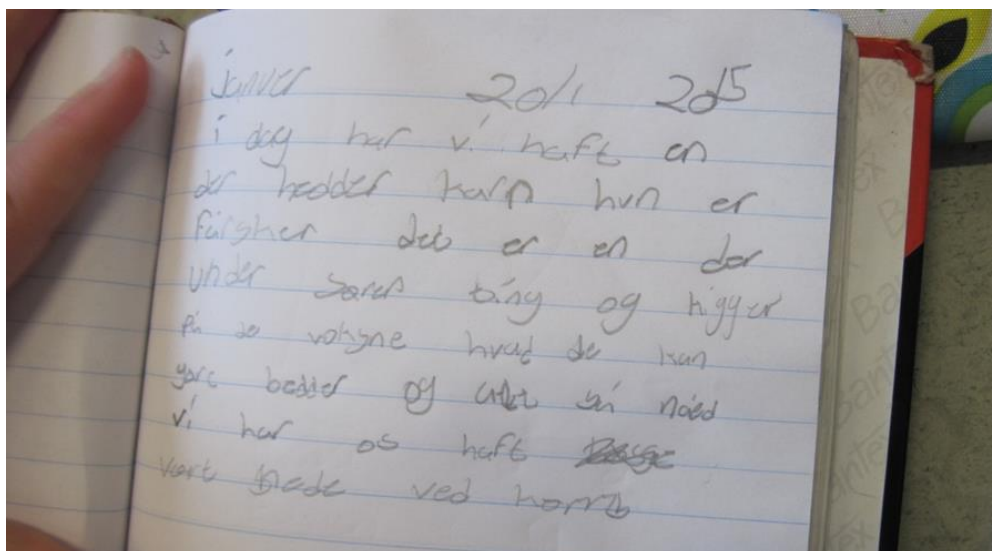 januer 20/1 2015
i dag har vi haft en
der hedder karn hun er
farsher det er en der
under søren ting og kigger
på de voksne hvad de kan
gøre bedder og så
vi har os haft
vært ved